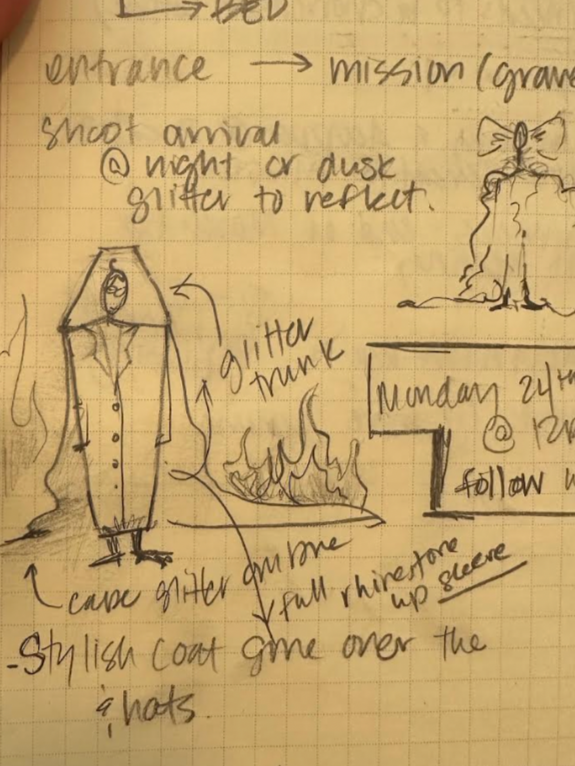 BED
entrance → mission (grave
shoot arrival
@ night or dusk
glitter to reflect.
glitter
trunk
Monday 24th
@ 12
follow
cape glitter ombre
full rhinestone
up sleeve
-Stylish coat gone over the
& hats.